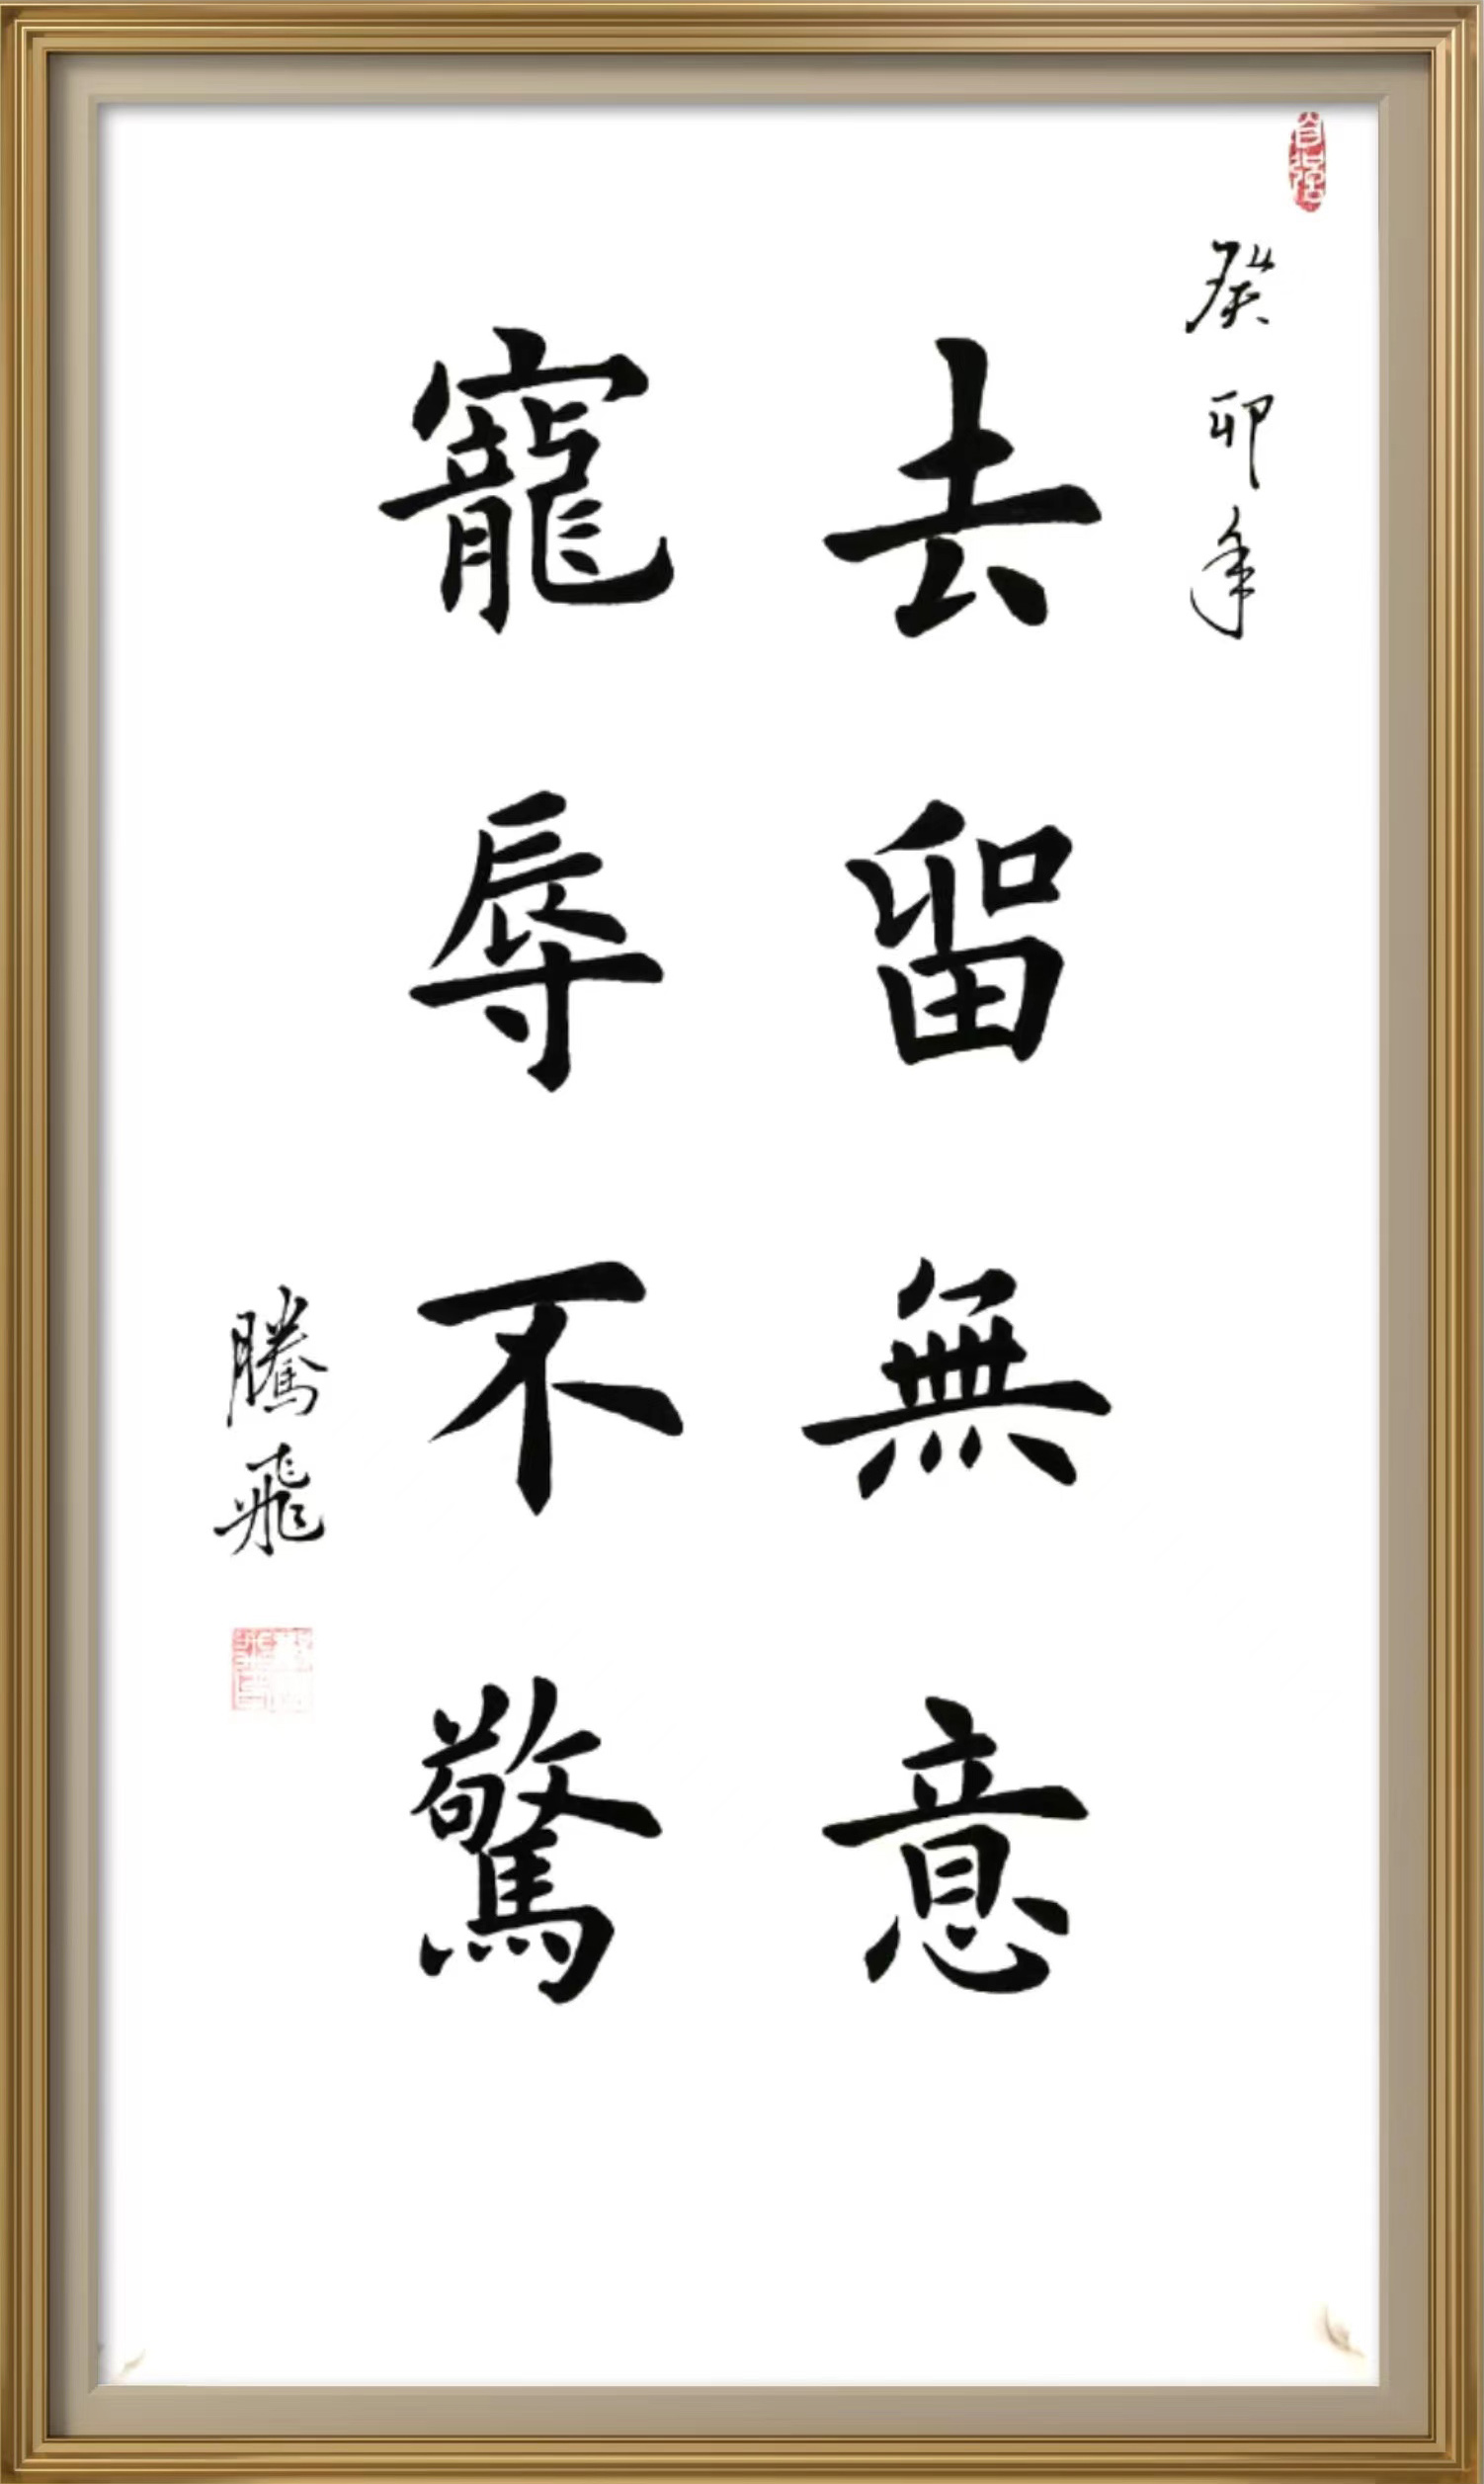 自强
癸卯年
去留無意
寵辱不驚
騰飛